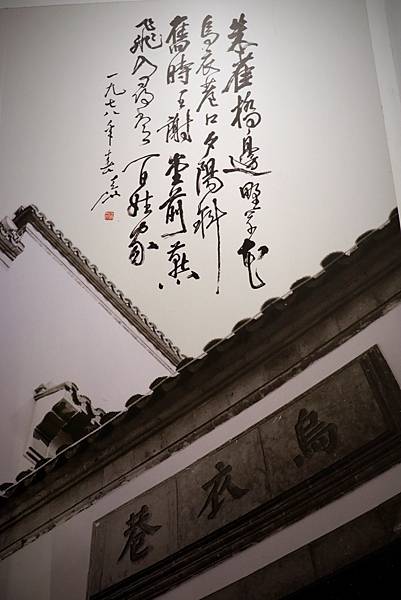 朱雀橋邊野草花
烏衣巷口夕陽斜
舊時王謝堂前燕
飛入尋常百姓家
一九七八年
烏衣巷